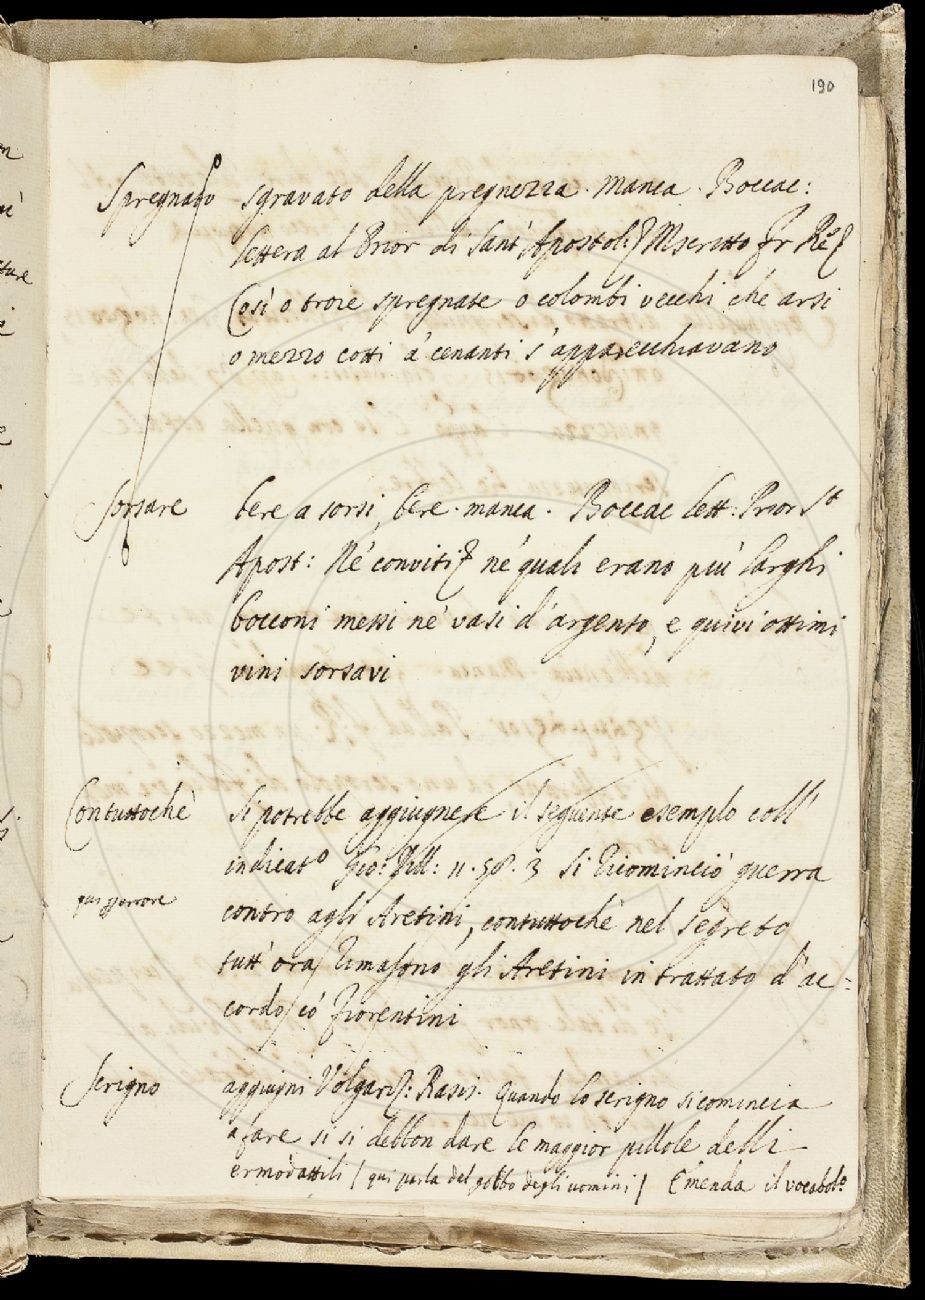 190
Spregnato sgravato della pregnezza. manca. Boccac:
lettera al Prior di Sant' Apostol: Mscritto fr Re
Così o troie spregnate o colombi vecchi che arsi
o mezzo cotti a' cenanti s' apparecchiavano
Sorsare bere a sorsi, bere. manca. Boccac lett: Prior St
Apost: Ne' conviti ne' quali erano più larghi
bocconi messi ne' vasi d' argento, e quivi ottimi
vini sorsavi
Contuttochè Si potrebbe aggiugnere il seguente esemplo coll'
indicato Gio: Vill: 11. 58. 3 Si ricominciò guerra
contro agli Aretini, contuttochè nel segreto
tutt' ora rimasono gli Aretini in trattato d' ac=
cordo co' fiorentini
Serigno aggiugni Volgariz: Rasis. Quando lo serigno si comincia
a fare si si debbon dare le maggior pillole delli
ermodattili / qui parla del gobbo degli uomini / Emenda il vocabolo